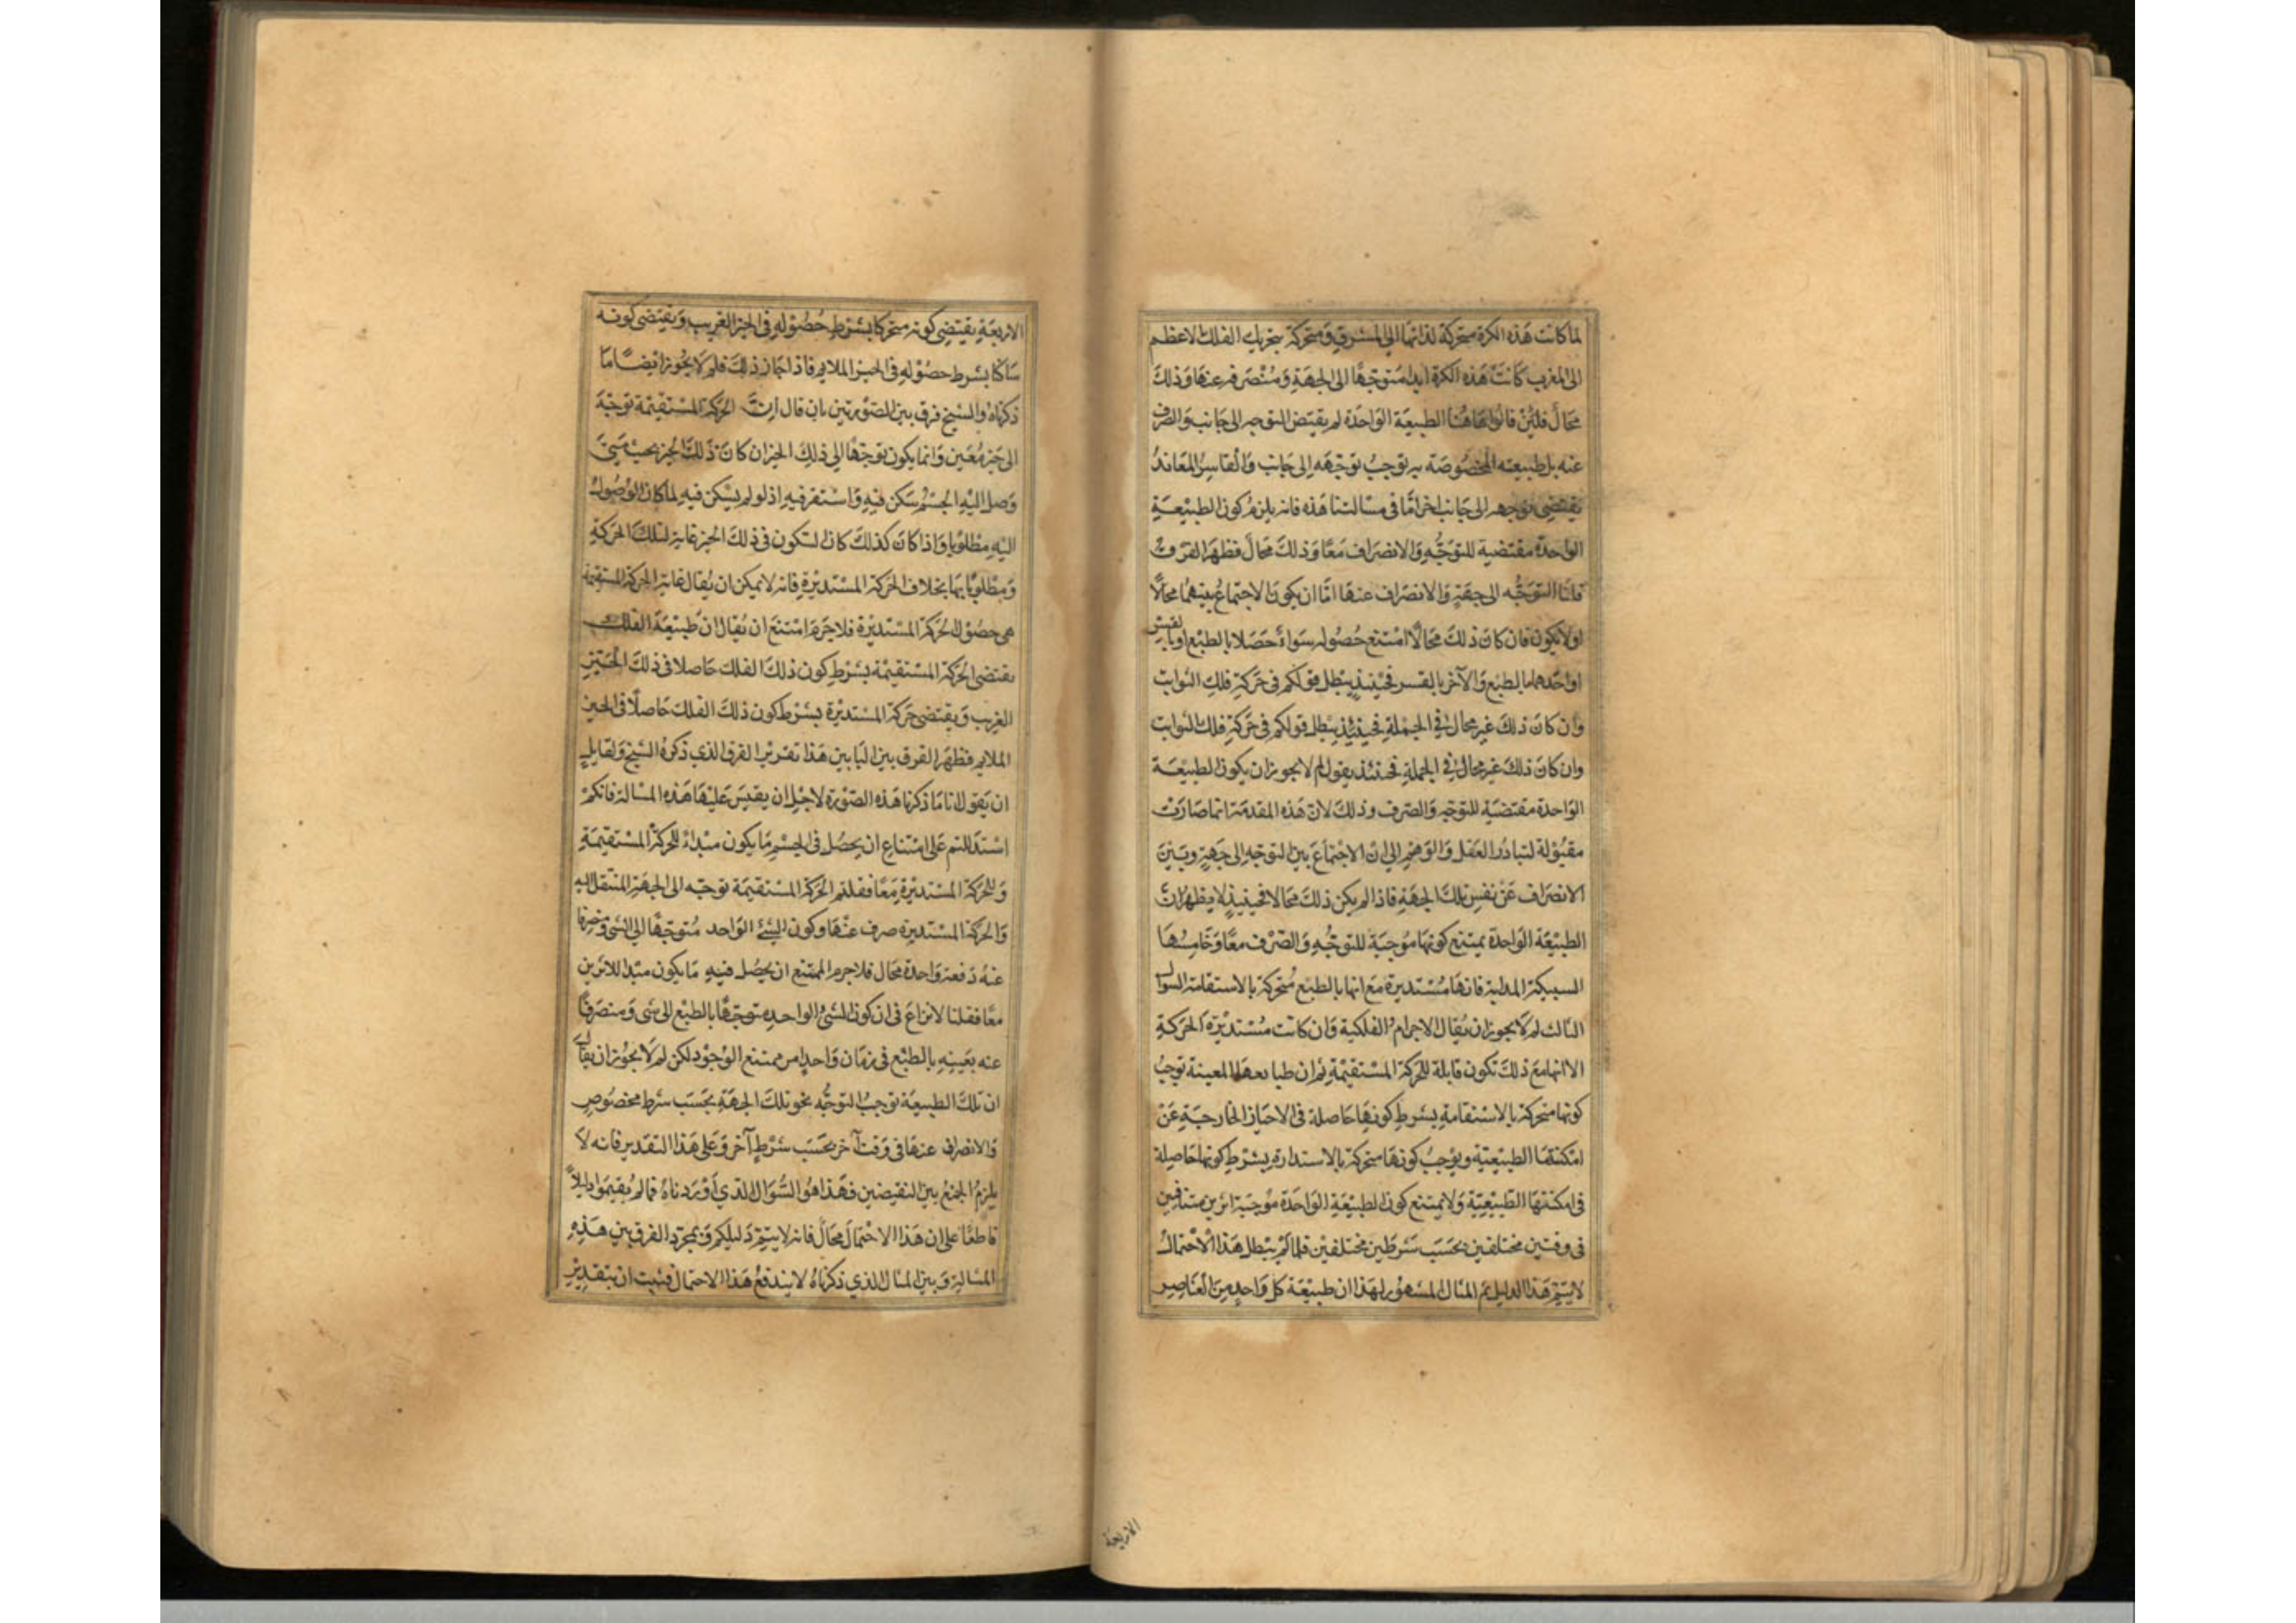 لما كانت هذه الكرة متحركة لذاتها الى المشرق ومتحركة بتحريك الفلك الاعظم
الى المغرب كانت هذه الكرة ابدا متوجها الى الجهة ومنصرفه عنها وذلك
محال فلئن قالوا هاهنا الطبيعة الواحدة لم يقتض التوجه الى جانب والصرف
عنه بل طبيعته المخصوصة به توجب توجهه الى جانب والقاسر المعاند
يقتضى توجهه الى جانب اخر اما فى مسالتنا هذه فانه يلزم كون الطبيعة
الواحدة مقتضية للتوجه والانصراف معا وذلك محال فظهر الفرق
قلنا التوجه الى جهة والانصراف عنها اما ان يكون الاجتماع بينهما محالا
اولا يكون فان كان ذلك محالا امتنع حصوله سواء حصلا بالطبع او بالقسر
او احدهما بالطبع والآخر بالقسر فحينئذ يبطل قولكم فى حركة فلك الثوابت
وان كان ذلك غير محال فى الجملة فحينئذ يبطل قولكم فى حركة فلك الثوابت
وان كان ذلك غير محال فى الجملة فحينئذ يقول لم لا يجوز ان يكون الطبيعة
الواحدة مقتضية للتوجه والصرف وذلك لان هذه المقدمة انما صارت
مقبولة لتبادر العقل والوهم الى ان الاجتماع بين التوجه الى جهة وبين
الانصراف عن نفس تلك الجهة فاذا لم يكن ذلك محالا فحينيذ لا يظهر ان
الطبيعة الواحدة يمتنع كونها موجبة للتوجه والصرف معا وخامسها
السبيكة المدابة فانها مستديرة مع انها بالطبع متحركة بالاستقامة السوال
الثالث لم لا يجوز ان يقال الاجرام الفلكية وان كانت مستديرة الحركة
الا انها مع ذلك تكون قابلة للحركة المستقيمة ثم ان طبايعها المعينة توجب
كونها متحركة بالاستقامة بشرط كونها حاصلة فى الاحياز الخارجية عن
امكنتها الطبيعية ويوجب كونها متحركة بالاستدارة بشرط كونها حاصلة
فى امكنتها الطبيعية ولا يمتنع كون الطبيعة الواحدة موجبة اثرين متنافيين
فى وقتين مختلفين بحسب شرطين مختلفين فلما لم يبطل هذا الاحتمال
لا يتم هذا الدليل ثم المثال المشهور لهذا ان طبيعة كل واحد من العناصر
الاربعة
الاربعة يقتضى كونه متحركا بشرط حصوله فى الحيز الغريب ويقتضى كونه
ساكنا بشرط حصوله فى الحيز الملايم فاذا جاز ذلك فلم لا يجوز ايضا ما
ذكرناه والشيخ فرق بين الصورتين بان قال ان الحركة المستقيمة توجه
الى حيز معين وانما يكون توجها الى ذلك الحيز ان كان ذلك الحيز بحيث متى
وصل اليه الجسم سكن فيه واستقر فيه اذ لو لم يسكن فيه لما كان الوصول
اليه مطلوبا واذا كان كذلك كان السكون فى ذلك الحيز غاية لتلك الحركة
ومطلوبا بها بخلاف الحركة المستديرة فانه لا يمكن ان يقال غاية الحركة المستقيمة
هى حصول الحركة المستديرة فلا جرم امتنع ان يقال ان طبيعة الفلك
يقتضى الحركة المستقيمة بشرط كون ذلك الفلك حاصلا فى ذلك الحيز
الغريب ويقتضى حركة المستديرة بشرط كون ذلك الفلك حاصلا فى الحيز
الملايم فظهر الفرق بين البابين هذا تقرير الفرق الذى ذكره الشيخ ولقايل
ان يقول انا ما ذكرنا هذه الصورة لاجل ان يقيس عليها هذه المسالة فانكم
استدللتم على امتناع ان يحصل فى الجسم ما يكون مبداء للحركة المستقيمة
وللحركة المستديرة معا فقلتم الحركة المستقيمة توجه الى الجهة المنتقل اليه
والحركة المستديرة صرف عنها وكون الشئ الواحد متوجها الى الشى ومنصرفا
عنه دفعة واحدة محال فلا جرم الممتنع ان يحصل فيه ما يكون مبدا للاثرين
معا فقلنا لا نزاع فى ان كون الشئ الواحد متوجها بالطبع الى شى ومنصرفا
عنه بعينه بالطبع فى زمان واحد امر ممتنع الوجود لكن لم لا يجوز ان يقال
ان تلك الطبيعة توجب التوجه نحو تلك الجهة بحسب شرط مخصوص
والانصراف عنها فى وقت آخر بحسب شرط آخر وعلى هذا التقدير فانه لا
يلزم الجمع بين النقيضين فهذا هو السوال الذي أوردناه فما لم يقيموا دليلا
قاطعا على ان هذا الاحتمال محال فانه لا يتم دليلكم وبمجرد الفرق بين هذه
المسالة وبين المثال الذي ذكرناه لا يندفع هذا الاحتمال فثبت ان بتقدير